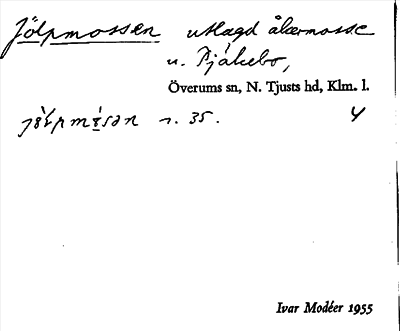 Jölpmossen utlagd åkermosse
u. Pjåkebo,
Överums sn, N. Tjusts hd, Klm. l.
r. 35. 4
Ivar Modéer 1955